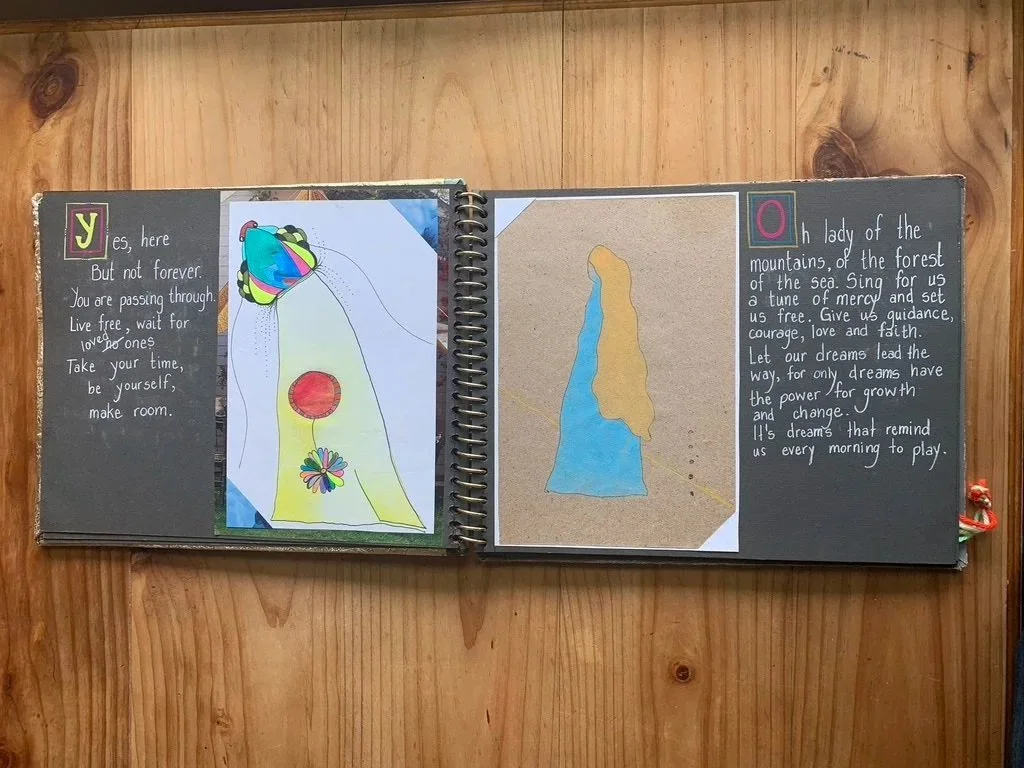 Yes, here
But not forever.
You are passing through.
Live free, wait for
loved no ones
Take your time,
be yourself,
make room.
Oh lady of the
mountains, of the forest
of the sea. Sing for us
a tune of mercy and set
us free. Give us guidance,
courage, love and faith.
Let our dreams lead the
way, for only dreams have
the power for growth
and change.
It's dreams that remind
us every morning to play.